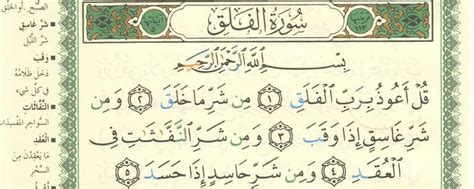 سُورَةُ الْفَلَقِ
١١٣
بِسْمِ اللَّهِ الرَّحْمَٰنِ الرَّحِيمِ
قُلْ أَعُوذُ بِرَبِّ الْفَلَقِ ١ مِن شَرِّ مَا خَلَقَ ٢ وَمِن
شَرِّ غَاسِقٍ إِذَا وَقَبَ ٣ وَمِن شَرِّ النَّفَّاثَاتِ فِي
الْعُقَدِ ٤ وَمِن شَرِّ حَاسِدٍ إِذَا حَسَدَ ٥
شَرِّ غَاسِقٍ
شَرّ اللَّيْل
وَقَبَ
دَخَلَ ظَلامُه
في كلِّ شيء
النَّفَّاثَات
السَّوَاحِر
العُقَد